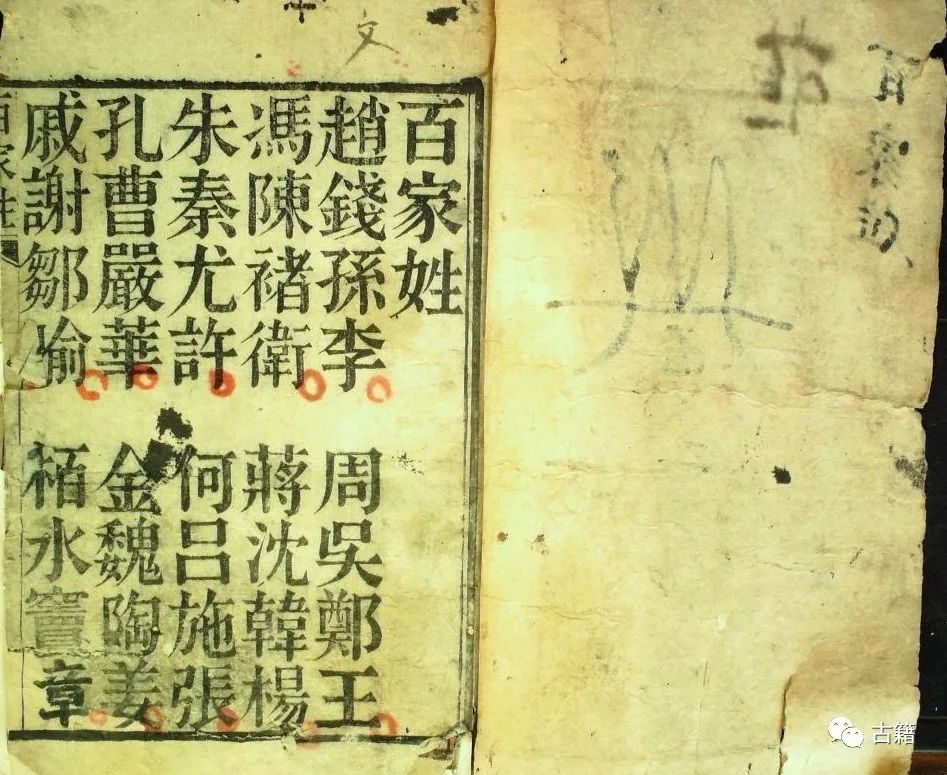 百家姓
文
百家姓
趙錢孫李 周吳鄭王
馮陳褚衛 蔣沈韓楊
朱秦尤許 何吕施張
孔曹嚴華 金魏陶姜
戚謝鄒喻 栢水竇章
百家姓
古籍